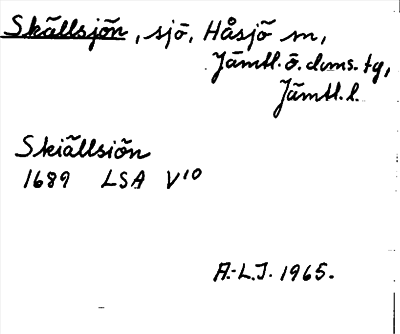 Skällsjön, sjö, Håsjö sn,
Jämtl. ö. doms. tg,
Jämtl. l.
Skiällsiön
1689 LSA V10
A.-L.J. 1965.